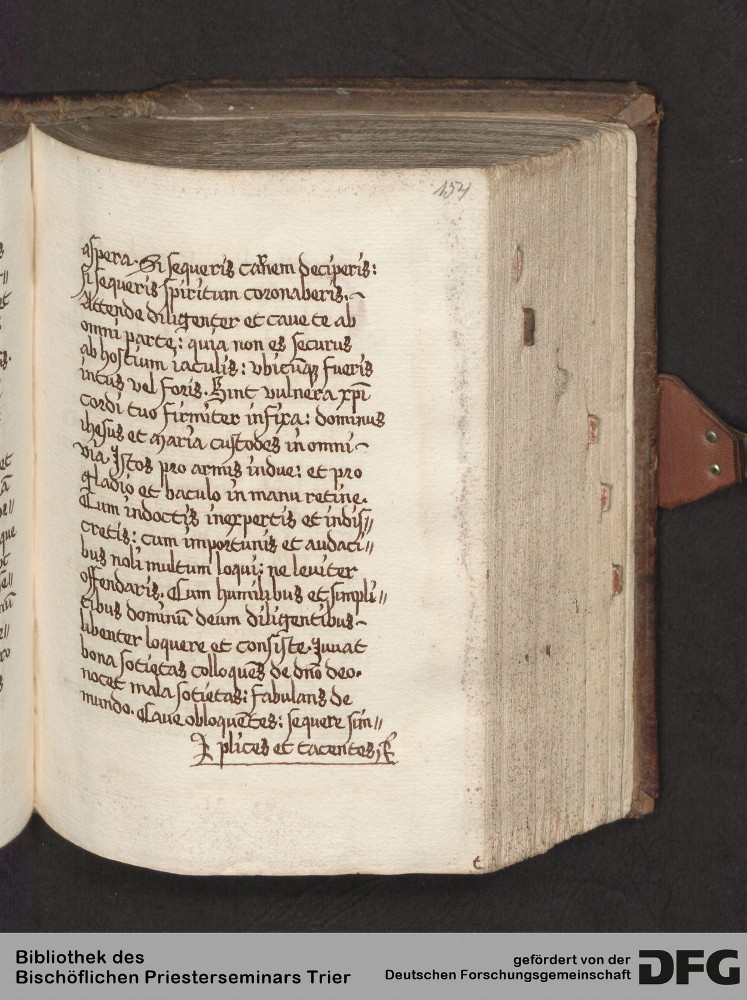 154
aspera. Si sequeris carnem deciperis:
si sequeris spiritum coronaberis.~
Attende diligenter et caue te ab
omni parte: quia non es securus
ab hostium iaculis: vbicūqꝫ fueris
intus vel foris. Sint vulnera xp̄i
cordi tuo firmiter infixa: dominus
ihesus et maria custodes in omni~
via. Istos pro armis indue: et pro
gladio et baculo in manu retine.
Cum indoctis inexpertis et indis//
cretis: cum importunis et audaci//
bus noli multum loqui: ne leuiter
offendaris. Cum humilibus et simpli//
cibus dominū deum diligentibus~
libenter loquere et consiste. Iuuat
bona societas colloquēs de dn̄o deo.
nocet mala societas: fabulans de
mundo. Caue obloquētes: sequere sim//
plices et tacentes,
t
Bibliothek des
Bischöflichen Priesterseminars Trier
gefördert von der
Deutschen Forschungsgemeinschaft
DFG